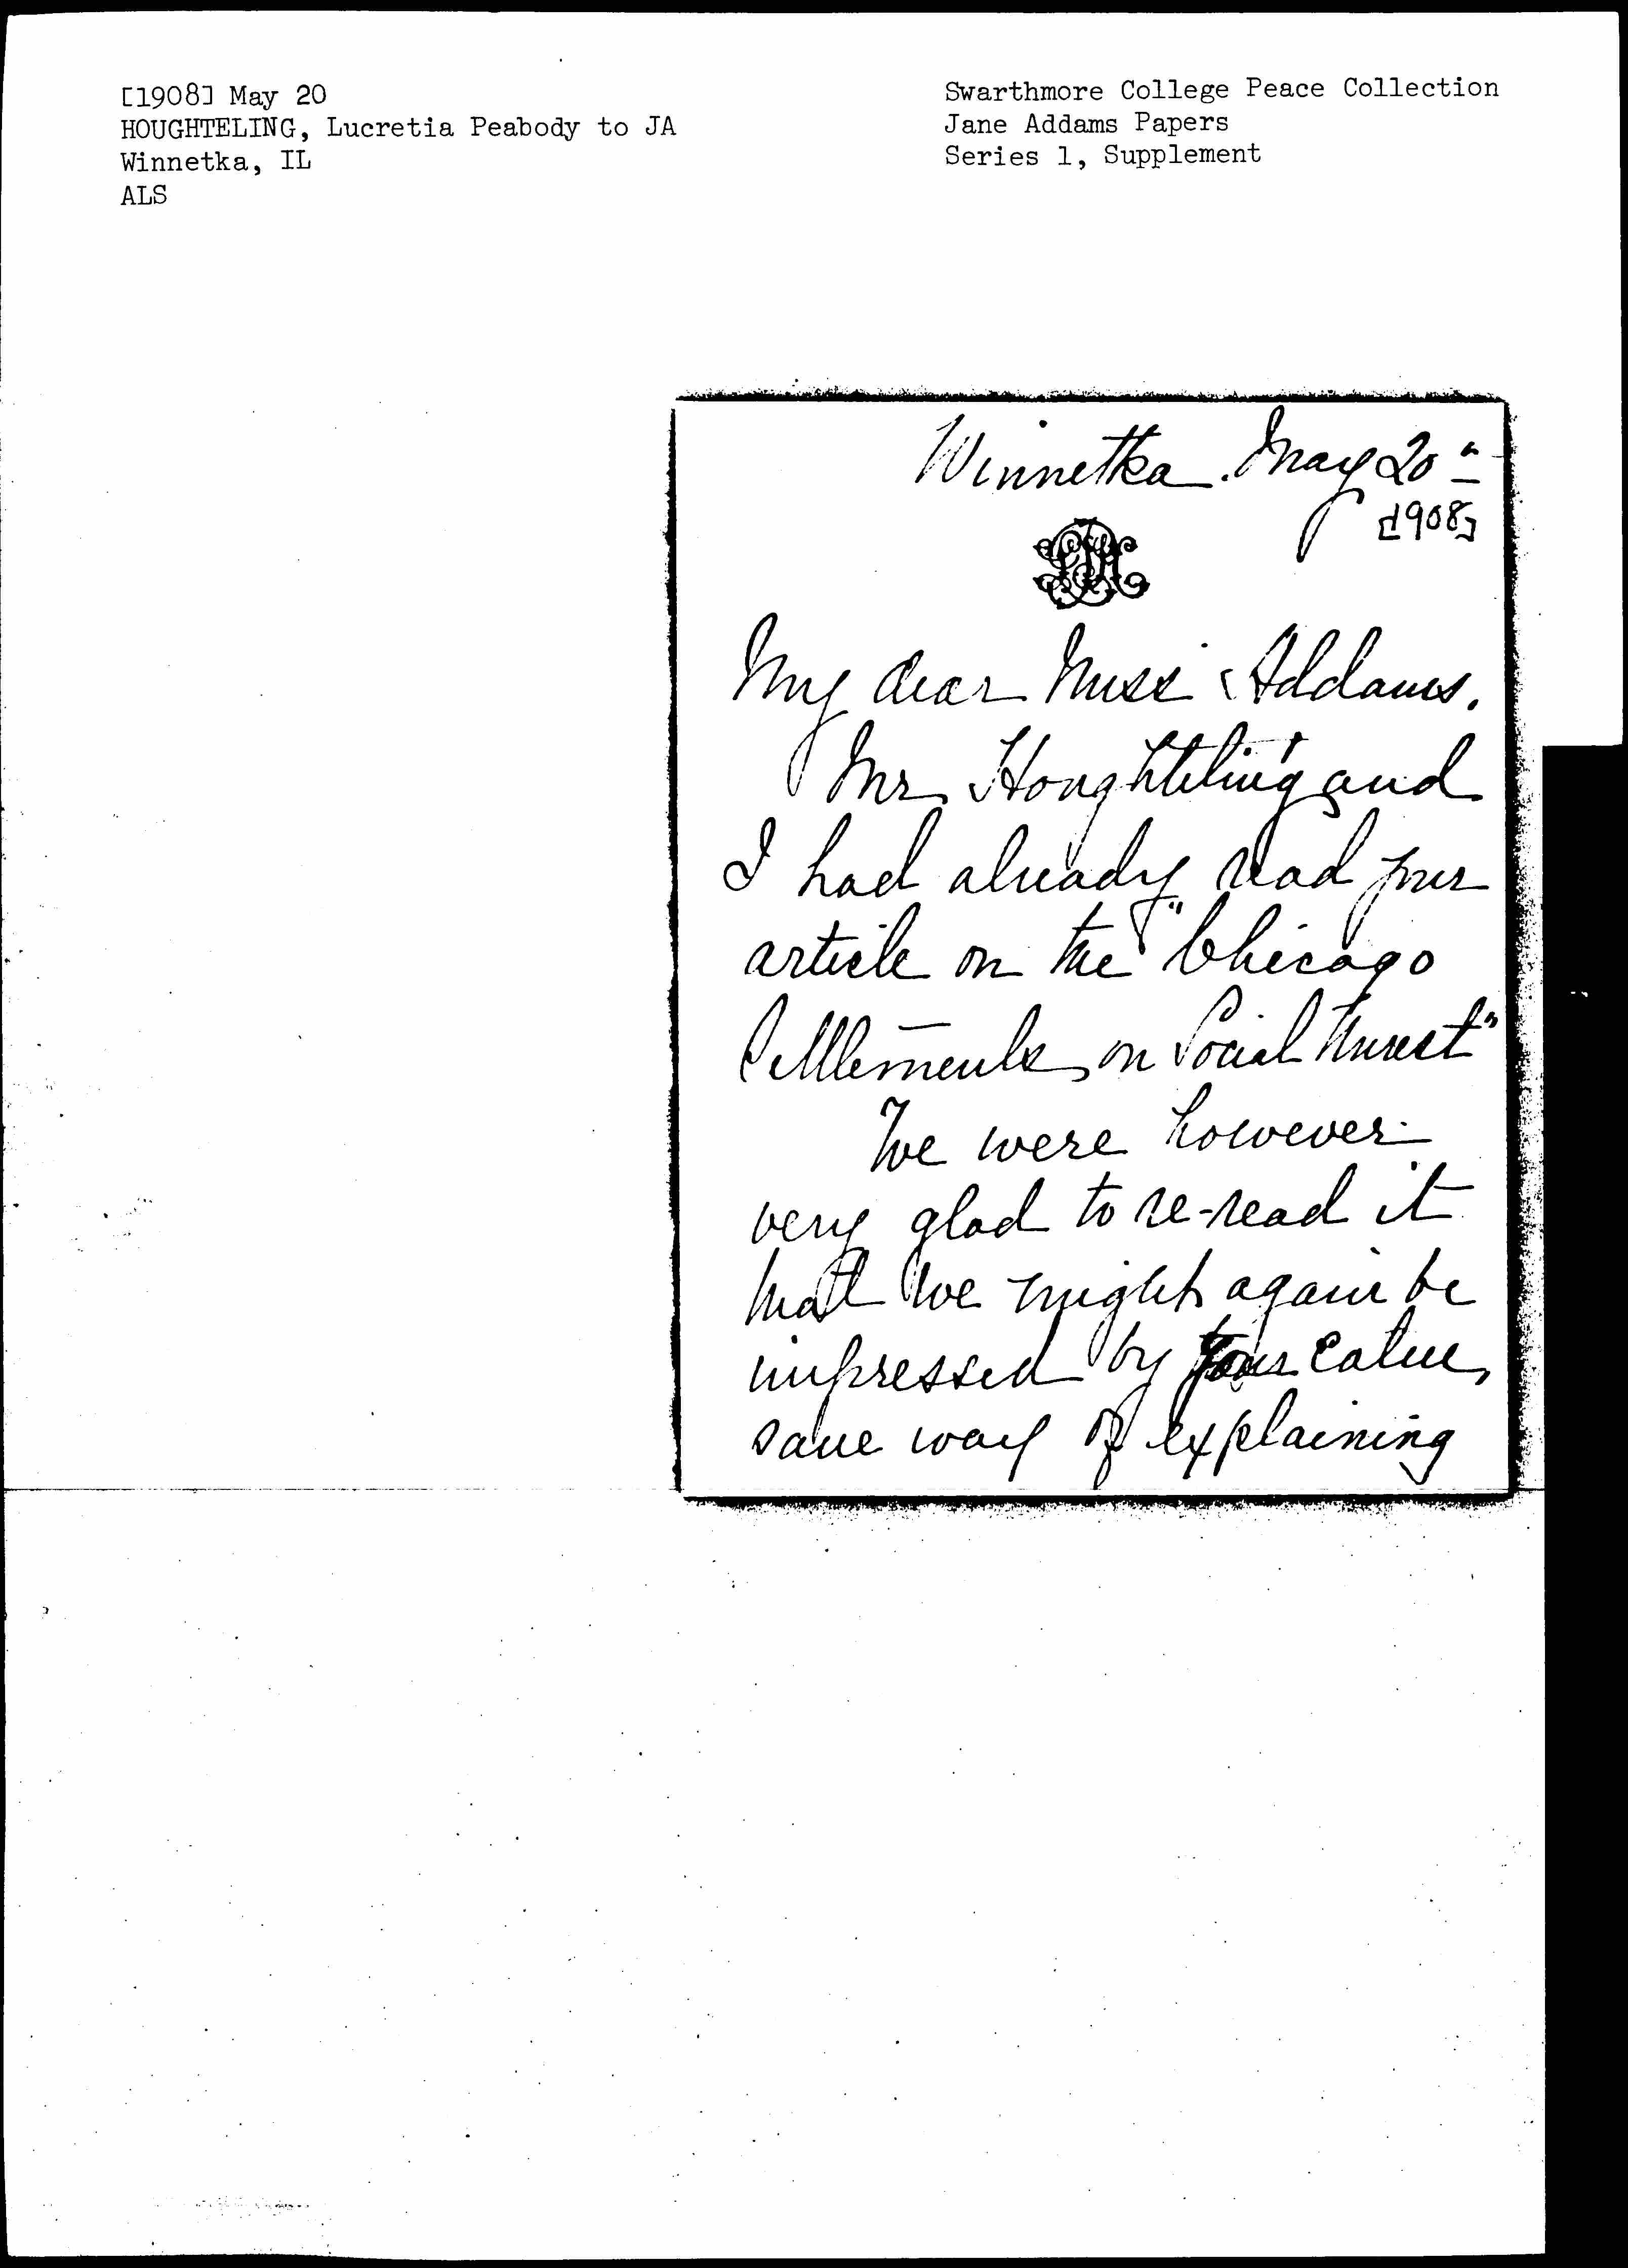 [1908] May 20
HOUGHTELING, Lucretia Peabody to JA
Winnetka, IL
ALS
Swarthmore College Peace Collection
Jane Addams Papers
Series 1, Supplement
Winnetka. May 20th
[1908]
My dear Miss Addams.
Mr. Houghteling and
I had already read your
article on the "Chicago
Settlements on Social Unrest"
We were however
very glad to re-read it
that we might again be
impressed by your calm,
sane way of explaining